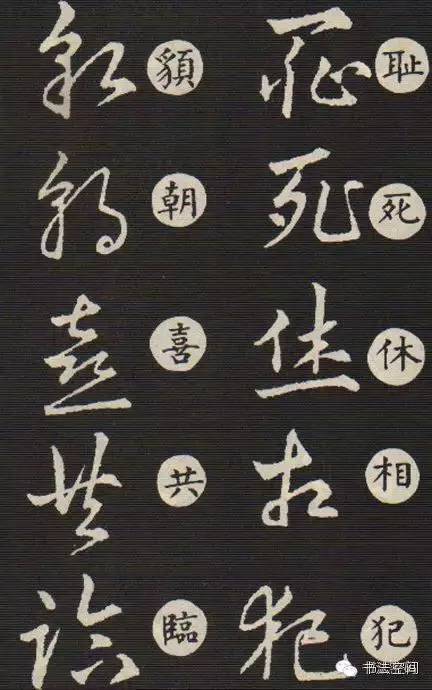 耻
死
休
相
犯
朝
喜
共
臨
书法空间